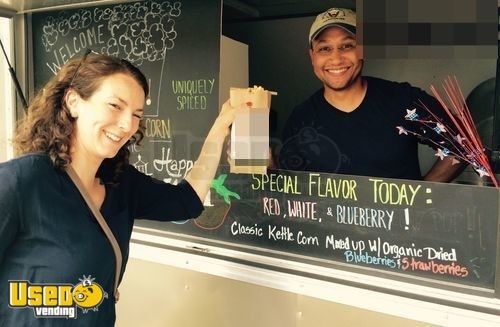 WELCOME
UNIQUELY
SPICED
CORN
Happ
SPECIAL FLAVOR TODAY:
RED, WHITE, & BLUEBERRY !
Classic Kettle Corn Mixed up w/ Organic Dried
Blueberries & Strawberries
Used
vending